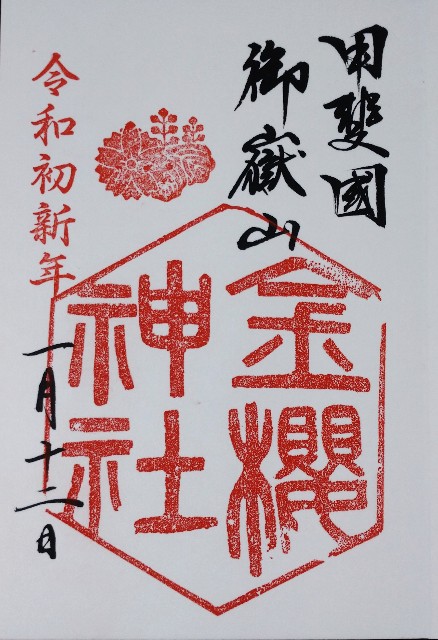 甲斐國
御嶽山
金櫻
神社
令和初新年
一月十二日